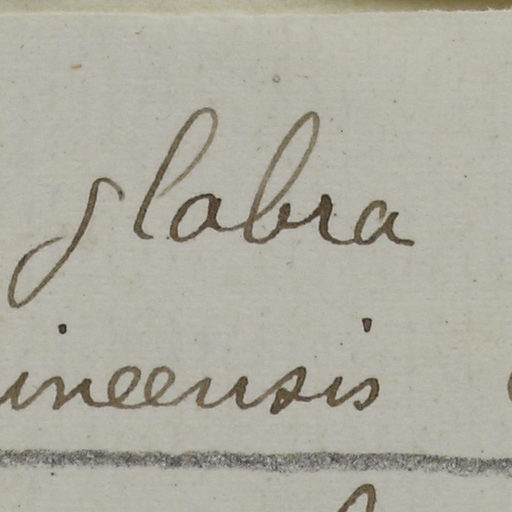 glabra
ineensis